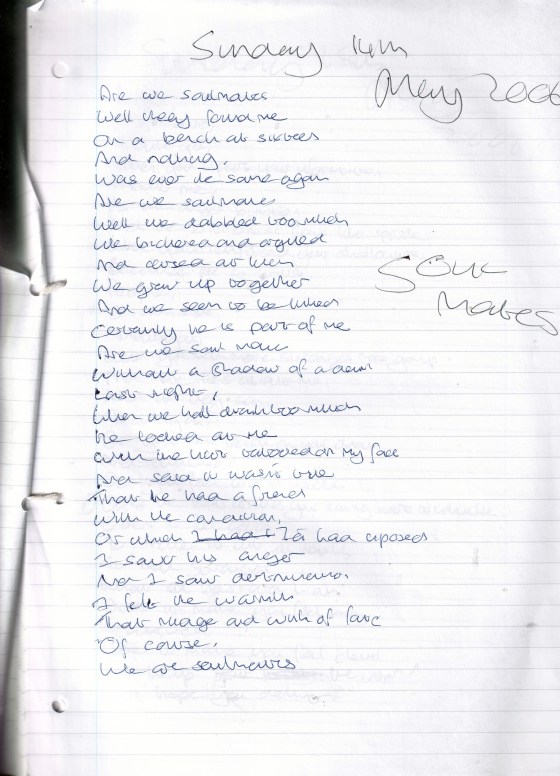 Sunday 14th
May 2006
Are we soulmates
Well they found me
On a bench at sixteen
And nothing.
Was ever the same again
Are we soulmates
Well we dabbled too much
We bickered and argued
And cursed at
We grew up together
And we seem to be linked
Soul
Mates
Certainly he is part of me
Are we soul mates
Without a shadow of a doubt
Last night,
When we had drunk too much
He looked at me
With the tattooed on my face
And said it wasn't true
That he had a friend
With the
Or which I had I'd had
I saw his anger
And I saw
I felt the warmth
That and of fate
Of course.
We are soulmates